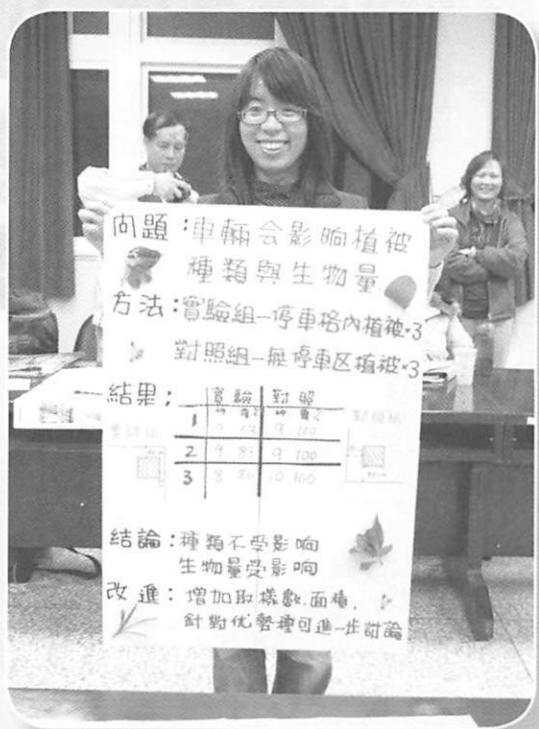 問題：車輛会影响植被
種類與生物量
方法：實驗組—停車格內植被×3
對照組—無停車区植被×3
結果：
實驗 對照
1 9 9 100
2 9 85 9 100
3 8 80 10 100
結論：種類不受影响
生物量受影响
改進：增加取樣數.面積.
針對优勢種可進一步討論